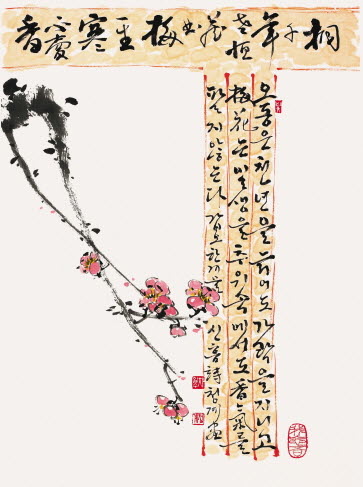 桐千年老恒藏曲梅一生寒不賣香
오동은 천년을 늙어도 가락을 지니고
梅花는 일생을 추위 속에서도 香氣를
팔지 않는다 신흠 詩